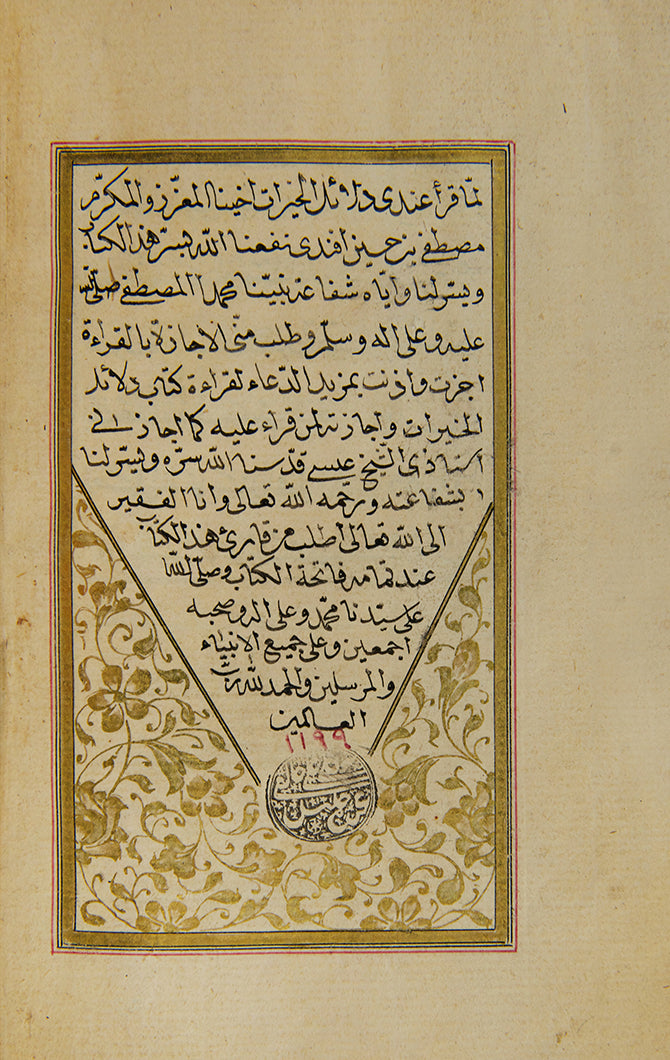 لمّا قرأ عندى دلائل الخيرات اخينا المعزّز والمكرّم
مصطفى بن حسين افندى نفعنا اللّه بسرّ هذا الكتاب
ويسّر لنا وايّاه شفاعة نبيّنا محمد المصطفى صلّى اللّه
عليه وعلى اله وسلّم وطلب منّى الاجازة بالقراءة
اجزت واذنت بمزيد الدّعاء لقراءة كتاب دلائل
الخيرات واجازته لمن قراء عليه كما اجازنى
استاذى الشّيخ عيسى قدّسنا اللّه سرّه ويسّر لنا
بشفاعته ورحمه اللّه تعالى وانا الفقير
الى اللّه تعالى اطلب من قارئ هذا الكتاب
عند تمامه فاتحة الكتاب وصلّى اللّه
على سيّدنا محمّد وعلى اله وصحبه
اجمعين وعلى جميع الانبياء
والمرسلين والحمد للّه ربّ
العالمين
١١٩٩